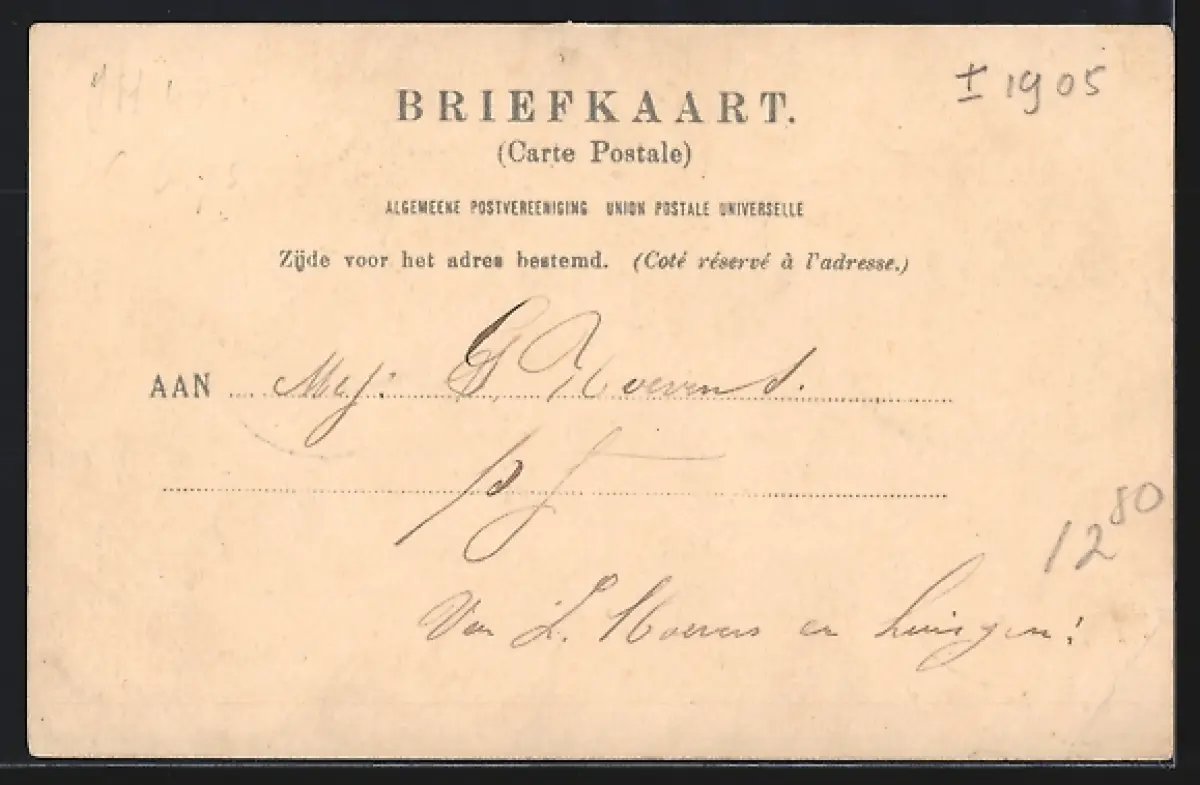 ± 1905
BRIEFKAART.
(Carte Postale)
ALGEMEENE POSTVEREENIGING UNION POSTALE UNIVERSELLE
Zijde voor het adres bestemd. (Coté réservé à l'adresse.)
AAN Mej: G.
12 80
Van L. en